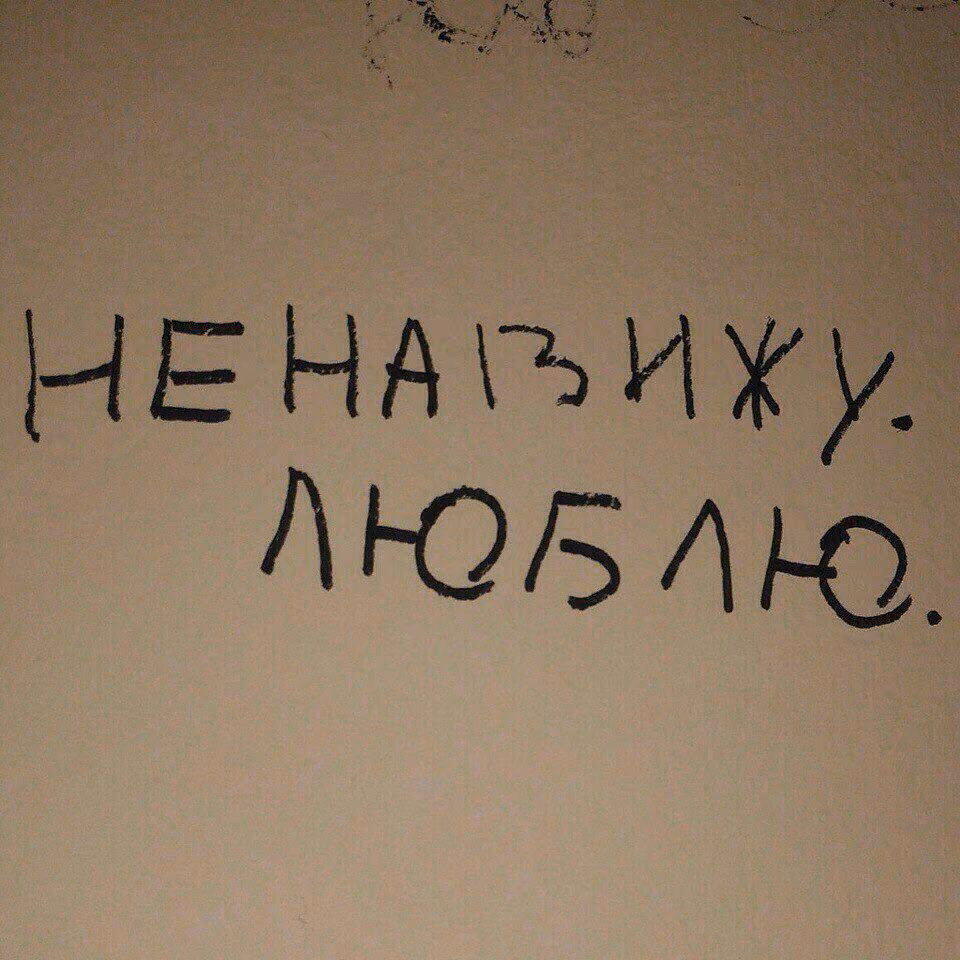 НЕНАВИЖУ.
ЛЮБЛЮ.